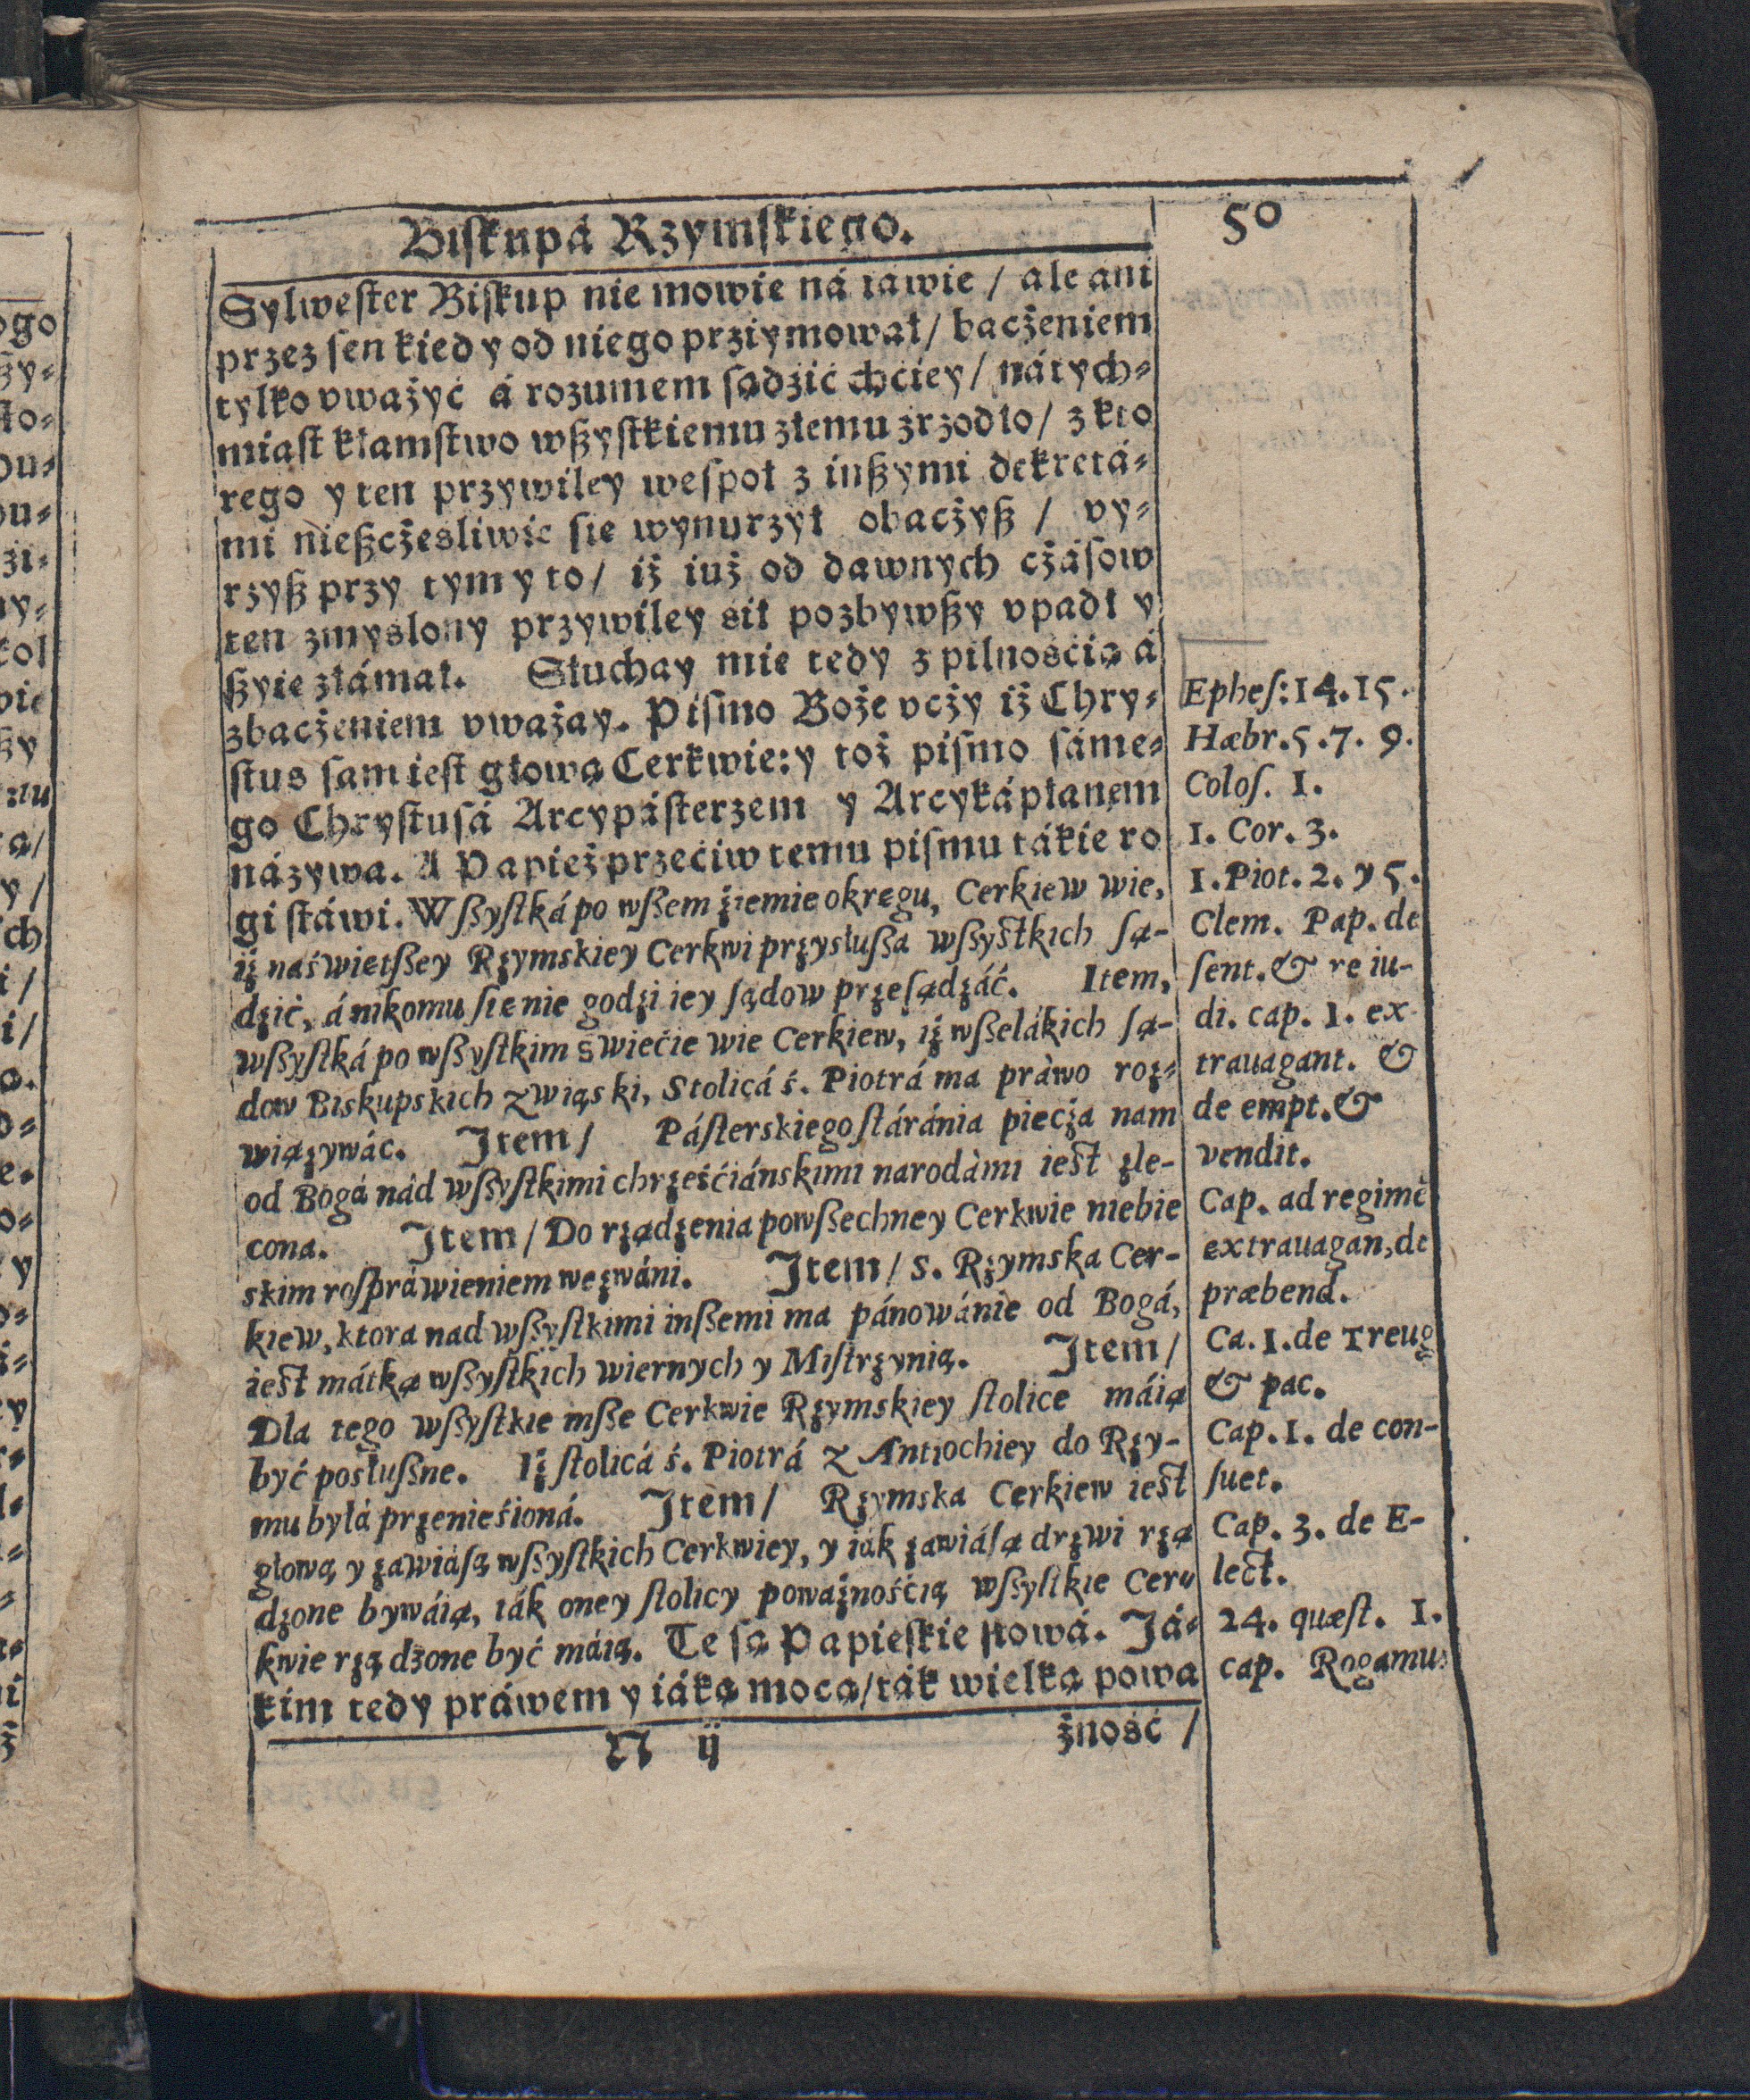 Biskupá Rzymskiego.
50
Sylwester Biskup nie mowię ná iáwie / ale ani
przez sen kiedy od niego prziymował / bacżeniem
tylko vważyć á rozumem sądzić chćiey / nátych-
miast kłamstwo wßystkiemu złemu zrzodło / z kto
rego y ten przywiley wespoł z inßymi dekretá-
mi nießcżesliwie się wynurzył obacżyß / vy-
rzyß przy tym y to / iż iuż od dawnych cżásow
ten zmyslony przywiley sił pozbywßy vpadł y
ßyię złámał. Słuchay mię tedy z pilnośćią á
zbacżeniem vważay. Pismo Boże vcży iż Chry-
stus sam iest głową Cerkwie: y toż pismo sáme-
go Chrystusá Arcypásterzem y Arcykápłanem
názywa. A Papież przećiw temu pismu tákie ro
gi stáwi. Wßyſtká po wßem źiemie okręgu, Cerkiew wie,
iż naświętßey Rzymskiey Cerkwi przysłußa wßyſtkich ſą-
dźić, á nikomu ſię nie godźi iey ſądow przeſądzáć. Item,
wßyſtká po wßyſtkim świećie wie Cerkiew, iż wßelákich ſą-
dow Biskupskich związki, Stolicá ś. Piotrá ma práwo roz-
wiązywác. Item / Páſterskiego ſtáránia piecża nam
od Bogá nád wßyſtkimi chrześćiánskimi narodámi ieſt zle-
cona. Item / Do rządzenia powßechney Cerkwie niebie
skim roſpráwieniem wezwáni. Item / S. Rzymska Cer-
kiew, ktora nad wßyſtkimi inßemi ma pánowánie od Bogá,
ieſt mátką wßyſtkich wiernych y Miſtrzynią. Item /
Dla tego wßyſtkie inße Cerkwie Rzymskiey ſtolice máią
być posłußne. Iż ſtolicá ś. Piotrá z Antiochiey do Rzy-
mu byłá przenieśioná. Item / Rzymska Cerkiew ieſt
głową y zawiáſą wßyſtkich Cerkwiey, y iák zawiáſą drzwi rzą
dzone bywáią, ták oney ſtolicy poważnośćią wßyſtkie Cer-
kwie rządzone być máią. Te są Papieskie słowá. Já-
kim tedy práwem y iáką mocą / ták wielką powa
N ij żność /
Epheſ: 14. 15.
Hæbr. 5. 7. 9.
Coloſ. 1.
1. Cor. 3.
1. Piot. 2. y 5.
Clem. Pap. de
ſent. & re iu-
di. cap. 1. ex-
trauagant. &
de empt. &
vendit.
Cap. ad regimē
extrauagan, de
præbend.
Ca. 1. de Treug
& pac.
Cap. 1. de con-
ſuet.
Cap. 3. de E-
lect.
24. quæſt. 1.
cap. Rogamus